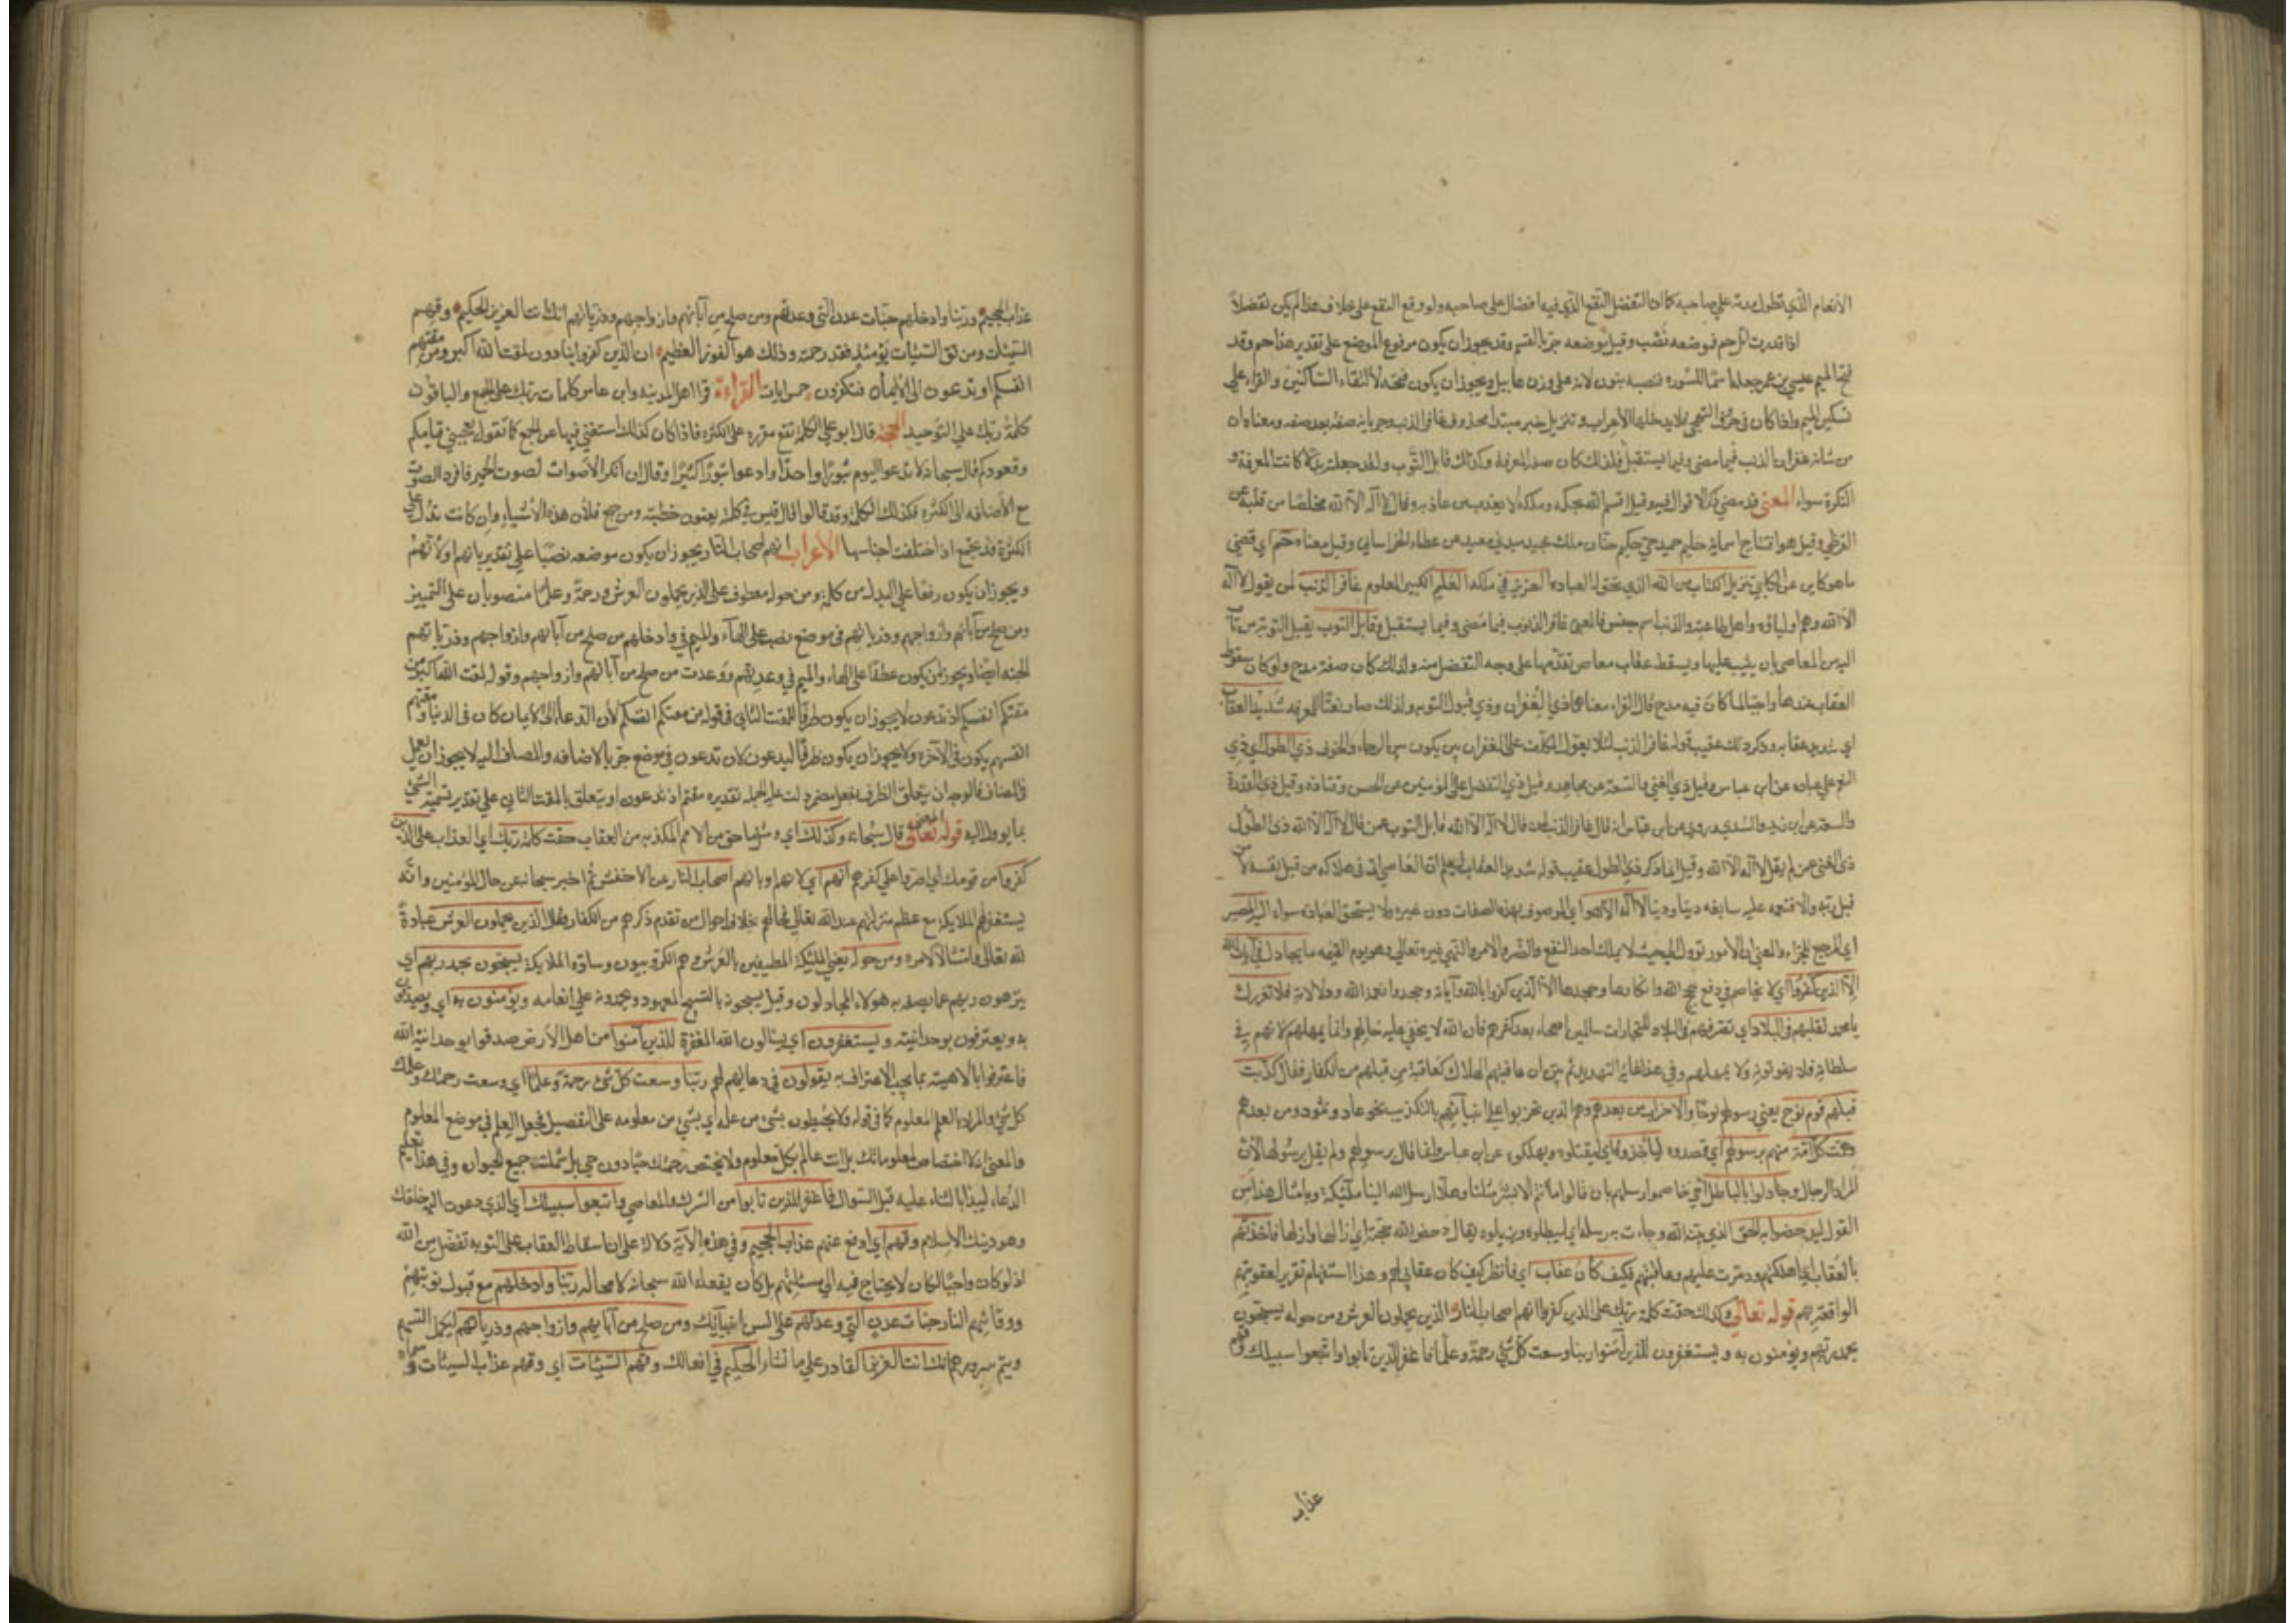 الأنعام الذي تطول مدته علي صاحبه كما ان التفضل النفع الذي فيه افضال علي صاحبه ولو وقع النفع علي خلاف هذا لم يكن تفضلاً
اذا قدرت اتل حم فموضعه نصب وقيل موضعه جرّ بالقسم وقد يجوز ان يكون مرفوع الموضع علي تقدير هذا حم وقد
فتح الميم عيسي بن عمر جعله اسمًا للسورة فنصبه بنون لانه علي وزن هابيل ويجوز ان يكون فتحه لالتقاء الساكنين والقراء علي
تسكين الميم واذا كان في حرف التهجي فلا يدخلها الاعراب وتنزيل خبر مبتدا محذوف غافر الذنب جر بانه صفة بعد صفه ومعناه ان
من شانه غفران الذنب فيما مضي وفيما يستقبل فلذلك كان صفة المعرفة وكذلك قابل التوب ولقد جعلته بدلا كانت المعرفة و
النكرة سواء المعني قد مضي ذكر الاقوال فيه وقيل اقسم الله بحكمه وملكه لا يعذب من عاذ به وقال لا اله الا الله مخلصا من قلبه عن
القرظي وقيل هو افتتاح اسمائه حليم حميد حي حكيم حنان ملك مجيد مبدئ معيد عن عطاء الخراساني وقيل معناه حم اي قضي
ما هو كاين عن الكلبي تنزيل الكتاب من الله الذي يحق له العباده العزيز في ملكه العليم الكثير المعلوم غافر الذنب لمن يقول لا اله
الا الله وهم اولياؤه واهل طاعته والذنب اسم جنس فالمعني غافر الذنوب فيما مضي وفيما يستقبل وقابل التوب يقبل التوبة من تاب
اليه من المعاصي بان يثيب عليها ويسقط عقاب معاص تقدمها علي وجه التفضل منه ولذلك كان صفة مدح ولو كان سقوط
العقاب عندها واجبًا لما كان فيه مدح قال الفراء معناهما ذي الغفران وذي قبول التوبه ولذلك صار نعتًا للمعرفه شديد العقاب
اي شديد عقابه وذكر ذلك عقيب قوله غافر الذنب لئلا يعول المكلف علي الغفران بل يكون بين الرجاء والخوف ذي الطول اي ذي
النعم علي عباده عن ابن عباس وقيل ذي الغني والسعة عن مجاهد وقيل ذي التفضل علي المؤمنين عن الحسن وقتاده وقيل ذي القدرة
والسعة عن ابن زيد والسدي وروي عن ابن عباس انه قال غافر الذنب لمن قال لا اله الا الله قابل التوب عمن قال لا اله الا الله ذي الطول
ذي الغني عمن لم يقل لا اله الا الله وقيل انما ذكر ذي الطول عقيب قوله شديد العقاب ليعلم ان العاصي اتي في هلاكه من قبل نفسه لا من
قبل ربه والا فنعمه عليه سابغه دينا ودنيا لا اله الا هو اي الموصوف بهذه الصفات دون غيره ولا يستحق العباده سواه اليه المصير
اي المرجع للجزاء والمعني ان الامور تؤول الي حيث لا يملك احد النفع والضر والامر والنهي غيره تعالي وهو يوم القيمه ما يجادل في آيات الله
الا الذين كفروا اي لا يخاصم في دفع حجج الله وانكارها وجحدها الا الذين كفروا بالله وآياته وجحدوا نعم الله ودلالاته فلا يغررك
يا محمد تقلبهم في البلاد اي تصرفهم في البلاد للتجارات سالمين اصحاء بعد كفرهم فان الله لا يخفي عليه حالهم وانما يمهلهم لانهم في
سلطانه فلا يفوتونه ولا يهملهم وفي هذا غاية التهديد ثم بين ان عاقبتهم الهلاك كعاقبة من قبلهم من الكفار فقال كذبت
قبلهم قوم نوح يعني رسولهم نوحًا والاحزاب من بعدهم وهم الذين تحزبوا علي انبيائهم بالتكذيب نحو عاد وثمود ومن بعدهم
وهمت كل امة منهم برسولهم اي قصدوه ليأخذوه اي ليقتلوه ويهلكوه عن ابن عباس وانما قال برسولهم ولم يقل برسولها لان
المراد الرجال وجادلوا بالباطل اي خاصموا رسلهم بان قالوا ما انتم الا بشر مثلنا وهلا ارسل الله الينا ملئيكة وبامثال هذا من
القول ليدحضوا به الحق الذي بينه الله وجاءت به رسله اي ليبطلوه ويزيلوه يقال ادحض الله حجته اي ازالها وازلها فاخذتهم
بالعقاب اي اهلكتهم ودمرت عليهم وعاقبتهم فكيف كان عقاب اي فانظر كيف كان عقابي لهم وهذا استفهام تقرير لعقوبتهم
الواقعة بهم قوله تعالي وكذلك حقت كلمة ربك علي الذين كفروا انهم اصحاب النار الذين يحملون العرش ومن حوله يسبحون
بحمد ربهم ويؤمنون به ويستغفرون للذين آمنوا ربنا وسعت كل شئ رحمة وعلما فاغفر للذين تابوا واتبعوا سبيلك وقهم
عذاب
عذاب الجحيم ربنا وادخلهم جنات عدن التي وعدتهم ومن صلح من آبائهم وازواجهم وذرياتهم انك انت العزيز الحكيم وقهم
السيئات ومن تق السيئات يومئذ فقد رحمته وذلك هو الفوز العظيم ان الذين كفروا ينادون لمقت الله اكبر من مقتكم
انفسكم اذ تدعون الي الايمان فتكفرون خمس ايات القراءة قرا اهل المدينه وابن عامر كلمات ربك علي الجمع والباقون
كلمة ربك علي التوحيد الحجة قال ابو علي الكلمة تقع مفرده علي الكثره فاذا كان كذلك استغني فيها عن الجمع كما تقول يعجبني قيامكم
وقعودكم قال سبحانه لا تدعوا اليوم ثبورًا واحدًا وادعوا ثبورًا كثيرًا وقال ان انكر الاصوات لصوت الحمير فافرد الصوت
مع الاضافه الي الكثره فكذلك الكلمة وقد قالوا قال قيس في كلمته يعنون خطبته ومن جمع فلان هذه الاشياء وان كانت تدل علي
الكثرة قد تجمع اذا اختلفت اجناسها الاعراب انهم اصحاب النار يجوز ان يكون موضعه نصبًا علي تقدير بانهم او لانهم
ويجوز ان يكون رفعًا علي البدل من كلمة ومن حوله معطوف علي الذين يحملون العرش ورحمة وعلمًا منصوبان علي التمييز
ومن صلح من آبائهم وازواجهم وذرياتهم في موضع نصب علي الهاء والميم في وادخلهم من صلح من آبائهم وازواجهم وذرياتهم
الجنه ايضا ويجوز ان يكون عطفًا علي الهاء والميم في وعدتهم ووعدت من صلح من آبائهم وازواجهم وقوله لمقت الله اكبر من
مقتكم انفسكم اذ تدعون لا يجوز ان يكون ظرفًا للمقت الثاني في قوله من مقتكم انفسكم لان الدعاء الي الايمان كان في الدنيا ومقتهم
انفسهم يكون في الآخره ولا يجوز ان يكون ظرفًا ليدعون لان تدعون في موضع جرّ بالاضافه والمضاف اليه لا يجوز ان يعمل
في المضاف فالوجه ان يتعلق الظرف بفعل مضمر دلت عليه الجمله تقديره مقتم اذ تدعون او يتعلق بالمقت الثاني علي تقدير تسمية الشئ
بما يؤول اليه قوله تعالي المعني قال سبحانه وكذلك اي ومثلما حق من الامم المكذبه من العقاب حقت كلمة ربك اي العذاب علي الذين
كفروا من قومك اي اصروا علي كفرهم انهم اي لانهم او بانهم اصحاب النار عن الاخفش ثم اخبر سبحانه عن حال المؤمنين وانه
يستغفر لهم الملايكه مع عظم منزلتهم عند الله تعالي فحالهم بخلاف احوال من تقدم ذكرهم من الكفار فقال الذين يحملون العرش عبادةً
لله تعالي وامتثالًا لامره ومن حوله يعني الملئكة المطيفين بالعرش وهم الكروبيون وسادة الملايكة يسبحون بحمد ربهم اي
ينزهون ربهم عما يصفه به هولاء المجادلون وقيل يسبحونه بالتسبيح المعهود ويحمدونه علي انعامه ويؤمنون به اي ويصدقون
به ويعترفون بوحدانيته ويستغفرون اي يسالون الله المغفرة للذين آمنوا من اهل الارض صدقوا بوحدانية الله
فاعترفوا بالاهيته بما يجب الاعتراف به يقولون في دعائهم لهم ربنا وسعت كل شئ رحمة وعلمًا اي وسعت رحمتك وعلمك
كل شئ والمراد بالعلم المعلوم كما في قوله ولا يحيطون بشئ من علمه اي بشئ من معلومه علي التفصيل فجعل العلم في موضع المعلوم
والمعني انه لا اختصاص لمعلوماتك بل انت عالم بكل معلوم ولا يختص رحمتك حيًا دون حي بل شملت جميع الحيوان وفي هذا تعليم
الدعاء ليبدا بالثناء عليه قبل السوال فاغفر للذين تابوا من الشرك والمعاصي واتبعوا سبيلك اي الذي دعوت اليه خلقك
وهو دينك الاسلام وقهم اي ادفع عنهم عذاب الجحيم وفي هذه الآية دلالة علي ان اسقاط العقاب علي التوبه تفضل من الله
اذ لو كان واجبًا لكان لا يحتاج فيه الي مسئلتهم بل كان يفعله الله سبحانه لا محالة ربنا وادخلهم مع قبول توبتهم
ووقايتهم النار جنات عدن التي وعدتهم علي السن انبيائك ومن صلح من آبائهم وازواجهم وذرياتهم ليكمل انسهم
ويتم سرورهم انك انت العزيز القادر علي ما تشاء الحكيم في افعالك وقهم السيئات اي وقهم عذاب السيئات و